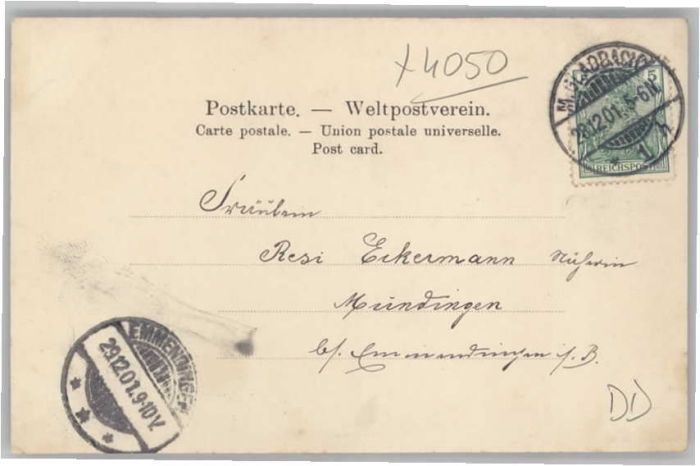 x4050
M.GLADBACH
28.12.01.5-6N.
* 1 h
5
REICHSPOST
Postkarte. — Weltpostverein.
Carte postale. — Union postale universelle.
Post card.
Fräulein
Resi Eckermann Näherin
Mundingen
bs/ Emmendingen i/B.
EMMENDINGEN
29.12.01.9-10V.
DD